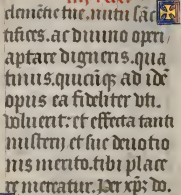 clemẽtie tue. nutu sãc
tifices. ac diuino operi
aptare digneris. qua
tinus. quicũqȝ ad idẽ
opus ea fideliter vti.
voluerit: et effecta tanti
misterij et sue deuotio
nis merito. tibi place
re mereatur. Per xp̃m do.